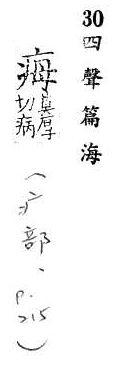 30 四聲篇海
痗莫厚切病
（疒部、p.215）